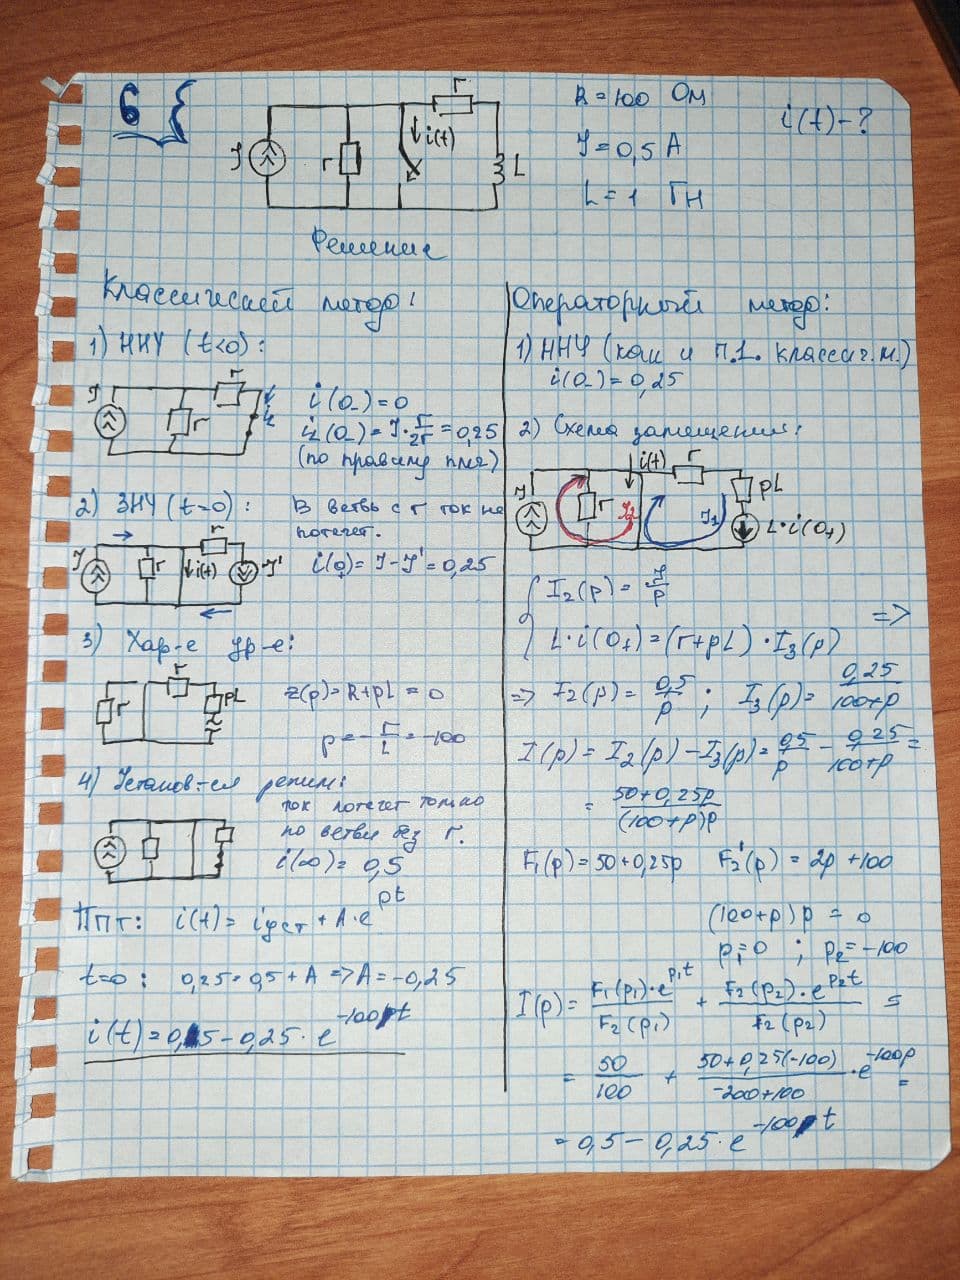 6
r
J
r
i(t)
L
R = 100 Ом
J = 0,5 А
L = 1 Гн
i(t) - ?
Решение
Классический метод:
1) ННУ (t<0):
J
r
r
i(0-) = 0
iL(0-) = J · r/2r = 0,25
(по правилу плеч)
2) ЗНУ (t=0):
В ветвь с r ток не
потечет.
J
r
i(t)
r
J'
i(0+) = J - J' = 0,25
3) Хар-е ур-е:
r
r
pL
z(p) = R + pL = 0
p = - r/L = -100
4) Установ-ся режим:
ток потечет только
по ветви без r.
i(∞) = 0,5
ППТ: i(t) = iуст + A · e^pt
t=0: 0,25 = 0,5 + A => A = -0,25
i(t) = 0,5 - 0,25 · e^-100t
Операторный метод:
1) ННУ (как и п.1. классич.м.)
i(0-) = 0,25
2) Схема замещения:
J
r
i(t)
r
pL
J2
J1
L·i(0+)
{ I2(p) = J/p
L·i(0+) = (r+pL) · I3(p) =>
=> I2(p) = 0,5/p ; I3(p) = 0,25/100+p
I(p) = I2(p) - I3(p) = 0,5/p - 0,25/100+p =
= 50+0,25p/(100+p)p
F1(p) = 50+0,25p F2'(p) = 2p+100
(100+p)p = 0
p1=0 ; p2=-100
I(p) = F1(p1)·e^p1t/F2(p1) + F2(p2)·e^p2t/F2(p2) =
= 50/100 + 50+0,25(-100)/-200+100 · e^-100p =
= 0,5 - 0,25 · e^-100t